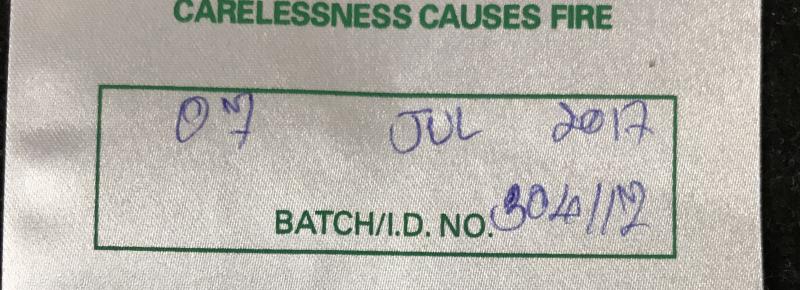 CARELESSNESS CAUSES FIRE
07 JUL 2017
BATCH/I.D. NO. 304/17